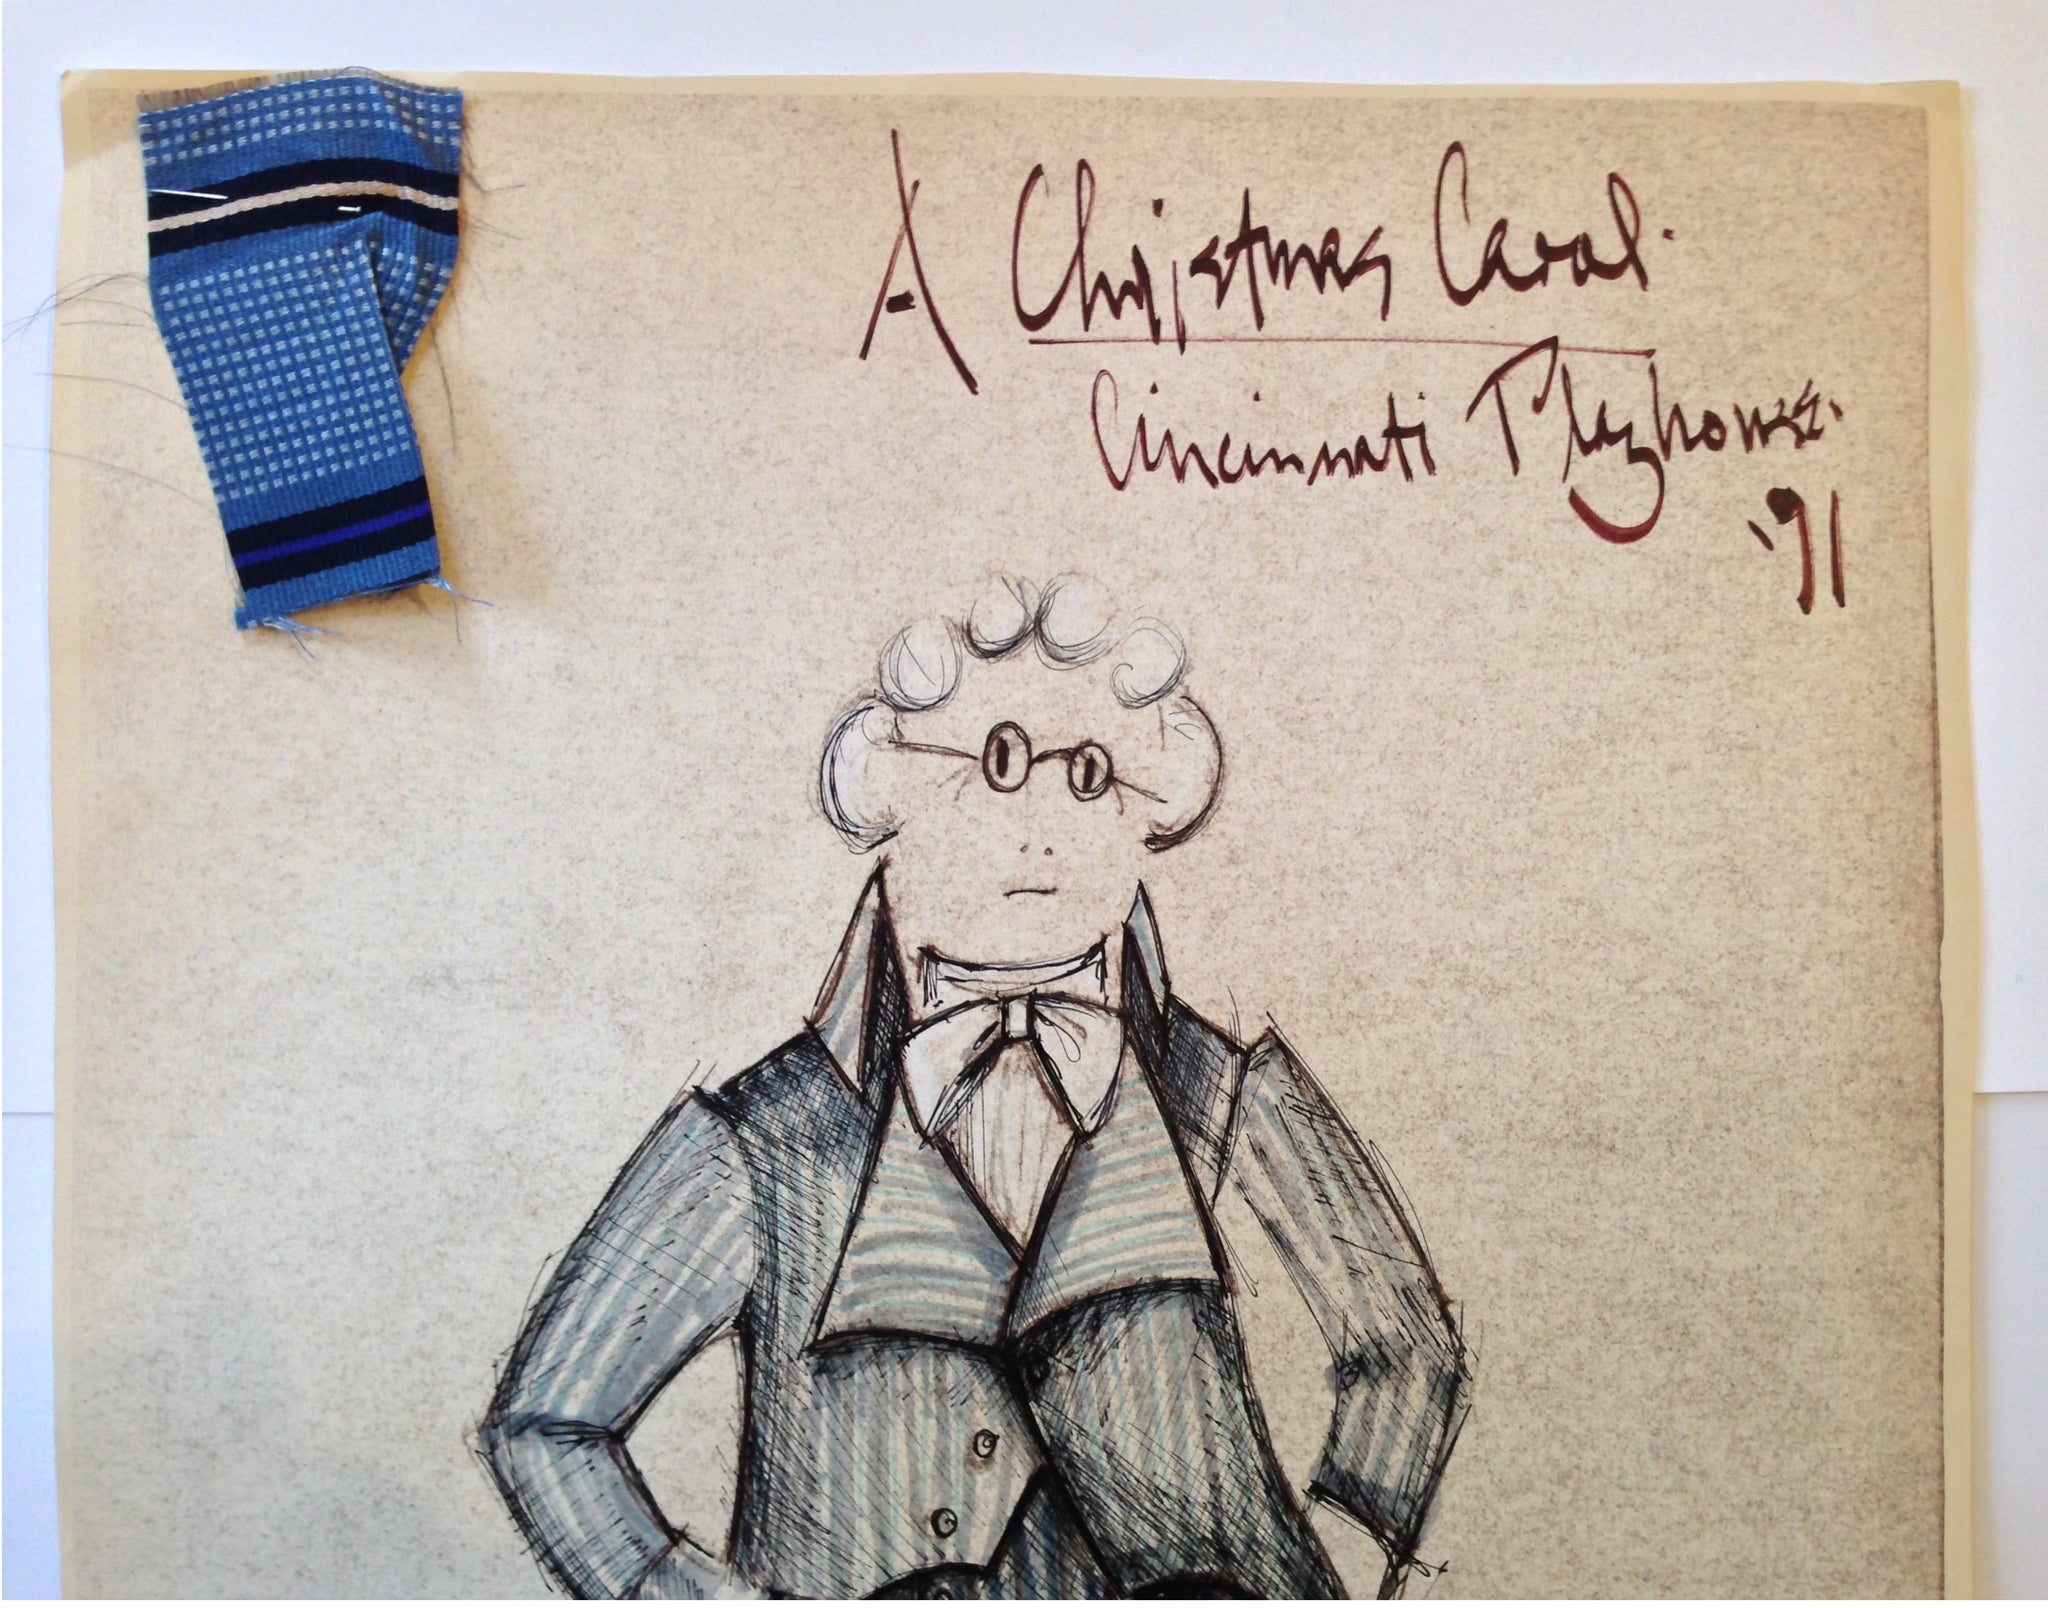 A Christmas Carol.
Cincinnati Playhouse.
'91